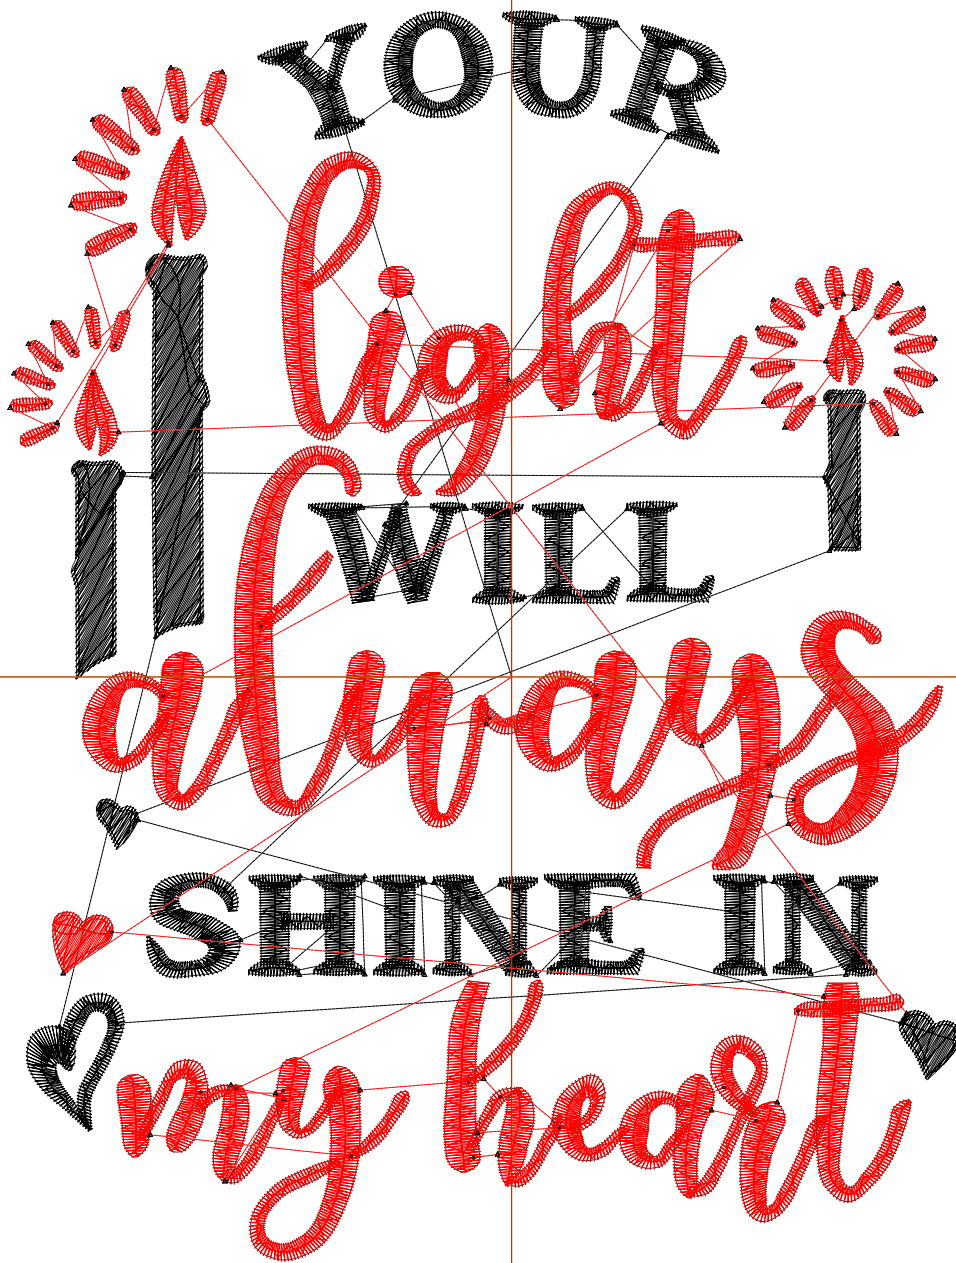 YOUR
light
WILL
always
SHINE IN
my heart